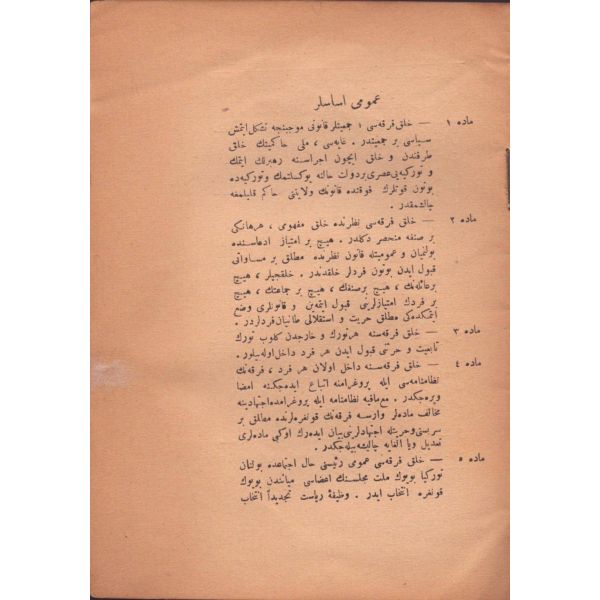 عمومی اساسلر
ماده ١ — خلق فرقه‌سی ؛ جمعیتلر قانونی موجبنجه تشکل ایتمش
سیاسی بر جمعیتدر . غایه‌سی ، ملی حاکمیتك خلق
طرفندن و خلق ایچون اجراسنه رهبرلك ایتمك
و تورکیه‌یی عصری بر دولت حالنه یوکسلتمك و تورکیه‌ده
بوتون قوتلرك فوقنده قانونك ولایتنی حاکم قیلمغه
چالشمقدر .
ماده ٢ — خلق فرقه‌سی نظرنده خلق مفهومی ، هرهانکی
بر صنفه منحصر دکلدر . هیچ بر امتیاز ادعاسنده
بولنمیان و عمومیتله قانون نظرنده مطلق بر مساواتی
قبول ایدن بوتون فردلر خلقدندر . خلقجیلر ، هیچ
بر عائله‌نك ، هیچ بر صنفك ، هیچ بر جماعتك ، هیچ
بر فردك امتیازلرینی قبول ایتمه‌ین و قانونلری وضع
ایتمکده‌کی مطلق حریت و استقلالی طانیان فردلردر .
ماده ٣ — خلق فرقه‌سنه هر تورك و خارجدن کلوب تورك
تابعیت و حرثنی قبول ایدن هر فرد داخل اوله‌بیلور .
ماده ٤ — خلق فرقه‌سنه داخل اولان هر فرد ، فرقه‌نك
نظامنامه‌سی ایله پروغرامنه اتباع ایده‌جکنه امضا
ویره‌جکدر . مع‌مافیه نظامنامه ایله پروغرامده اجتهادینه
مخالف ماده‌لر وارسه فرقه‌نك قونغره‌لرنده مطلق بر
سربستی و حریتله اجتهادلرینی بیان ایده‌رك او کبی ماده‌لری
تعدیل ویا الغایه چالیشه‌بیله‌جکدر .
ماده ٥ — خلق فرقه‌سی عمومی رئیسنی حال اجتماعده بولنان
تورکیا بویوك ملت مجلسنك اعضاسی میانندن بویوك
قونغره انتخاب ایدر . وظیفهٔ ریاست تجدیداً انتخاب